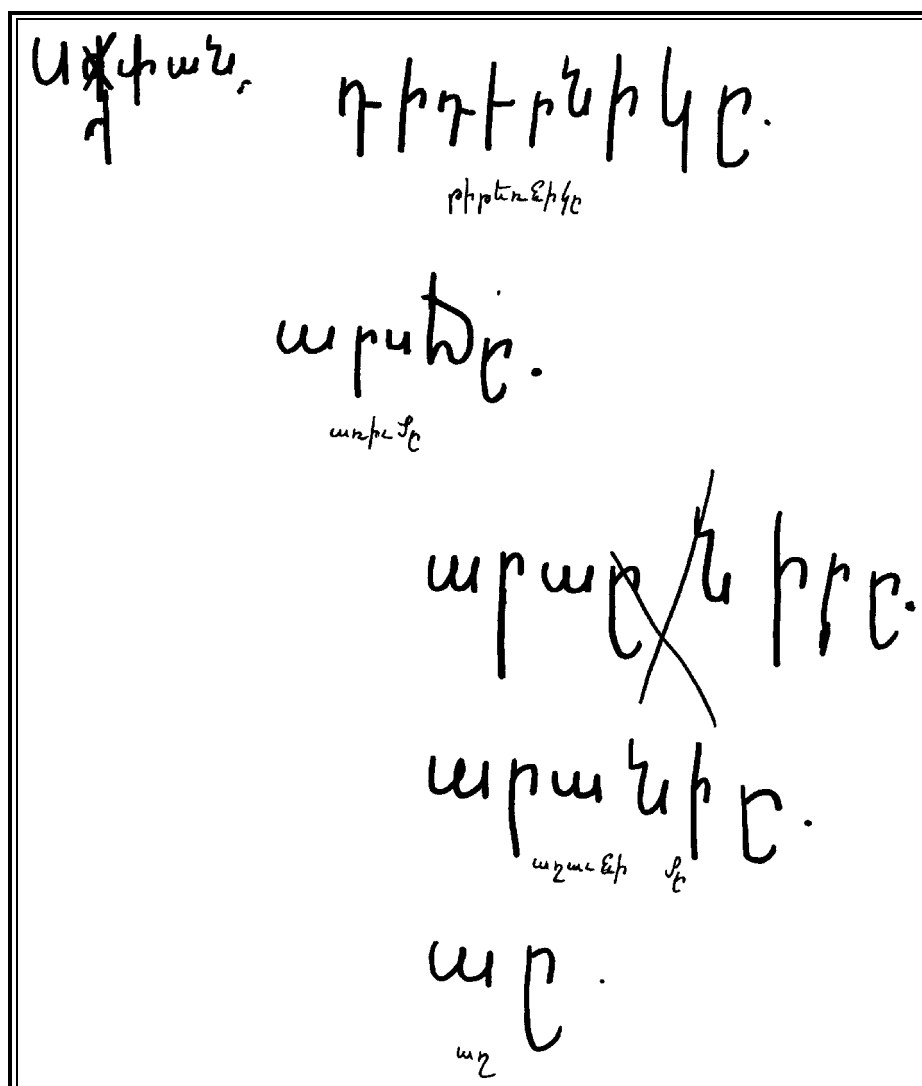 դիդերնիկը.
թիթեռնիկը
արսծը.
առիւծը
արաը նիրը.
արանիը.
աղաւնի ծը
աը.
աղ